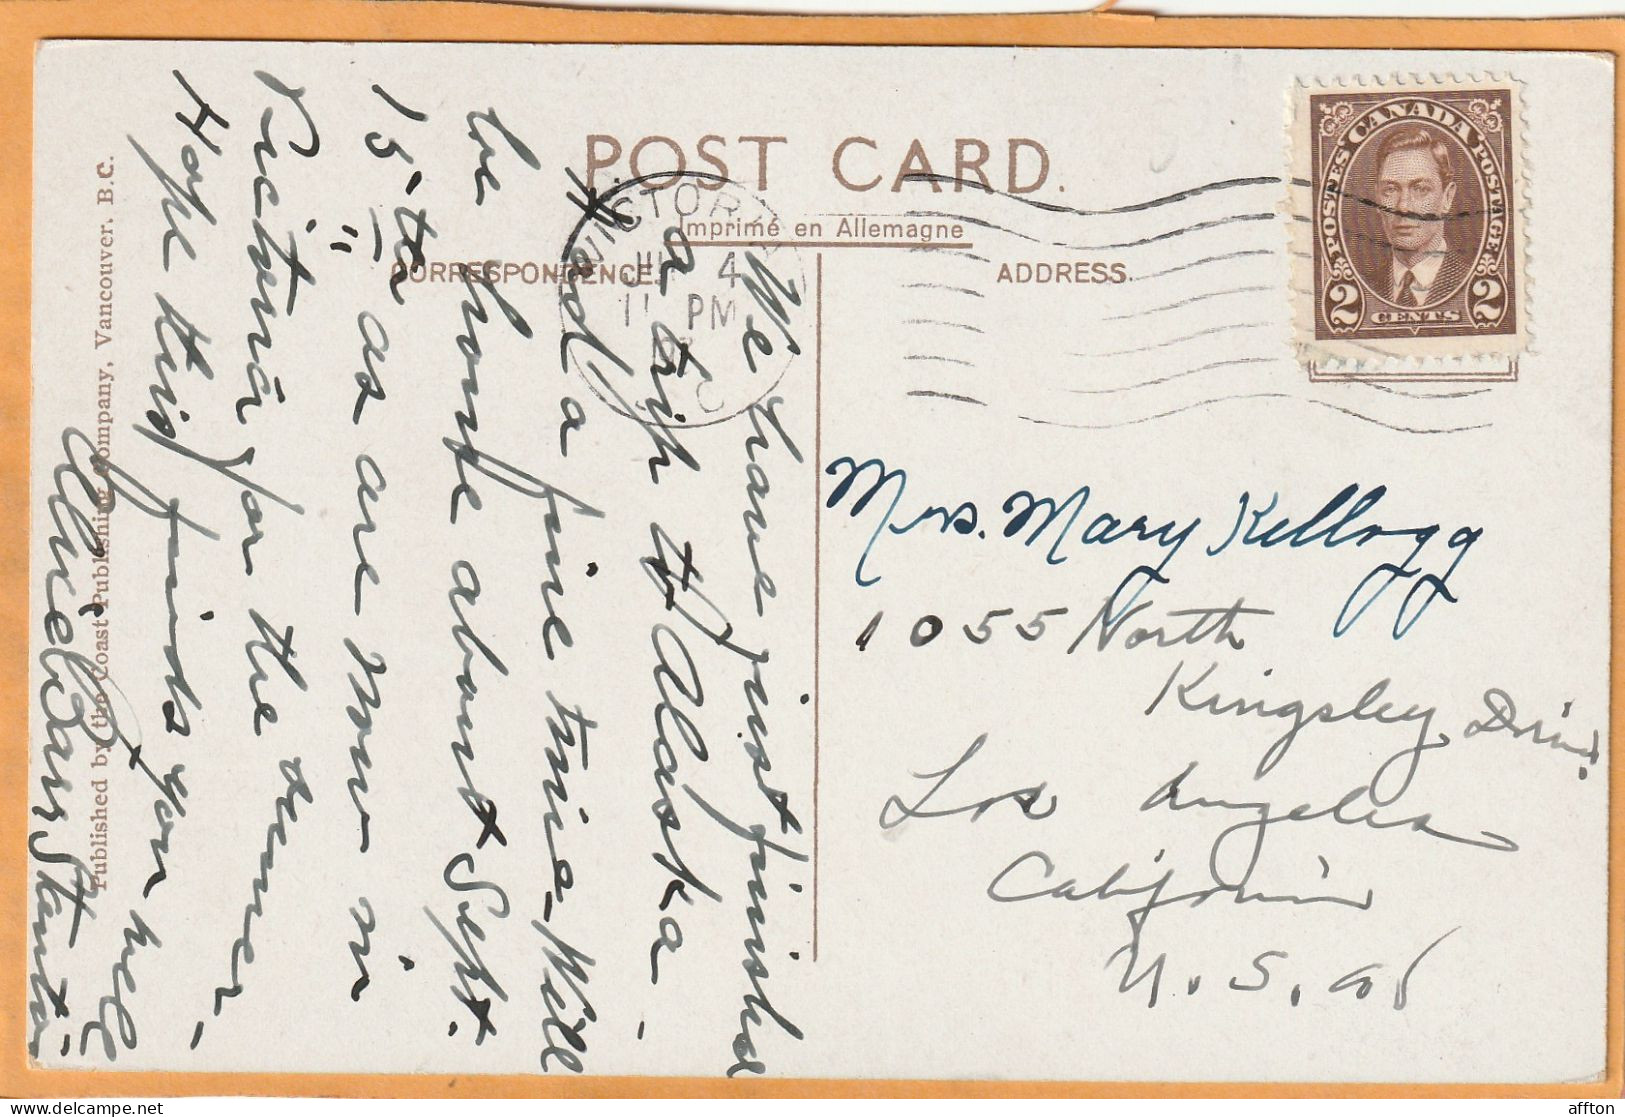 POST CARD.
Imprimé en Allemagne
CORRESPONDENCE.
ADDRESS.
VICTORIA
4
PM
POSTES CANADA POSTAGE
2 CENTS 2
We have just finished
a trip to Alaska -
Had a fine time - Will
be home about Sept.
15th as are now in
Victoria for the summer -
Hope this finds you well -
Alice Barr Stanton
Mrs. Mary Kellogg
1055 North
Kingsley Drive.
Los Angeles
California
U.S.A.
Published by the Coast Publishing Company, Vancouver. B.C.
delcampe.net
affton